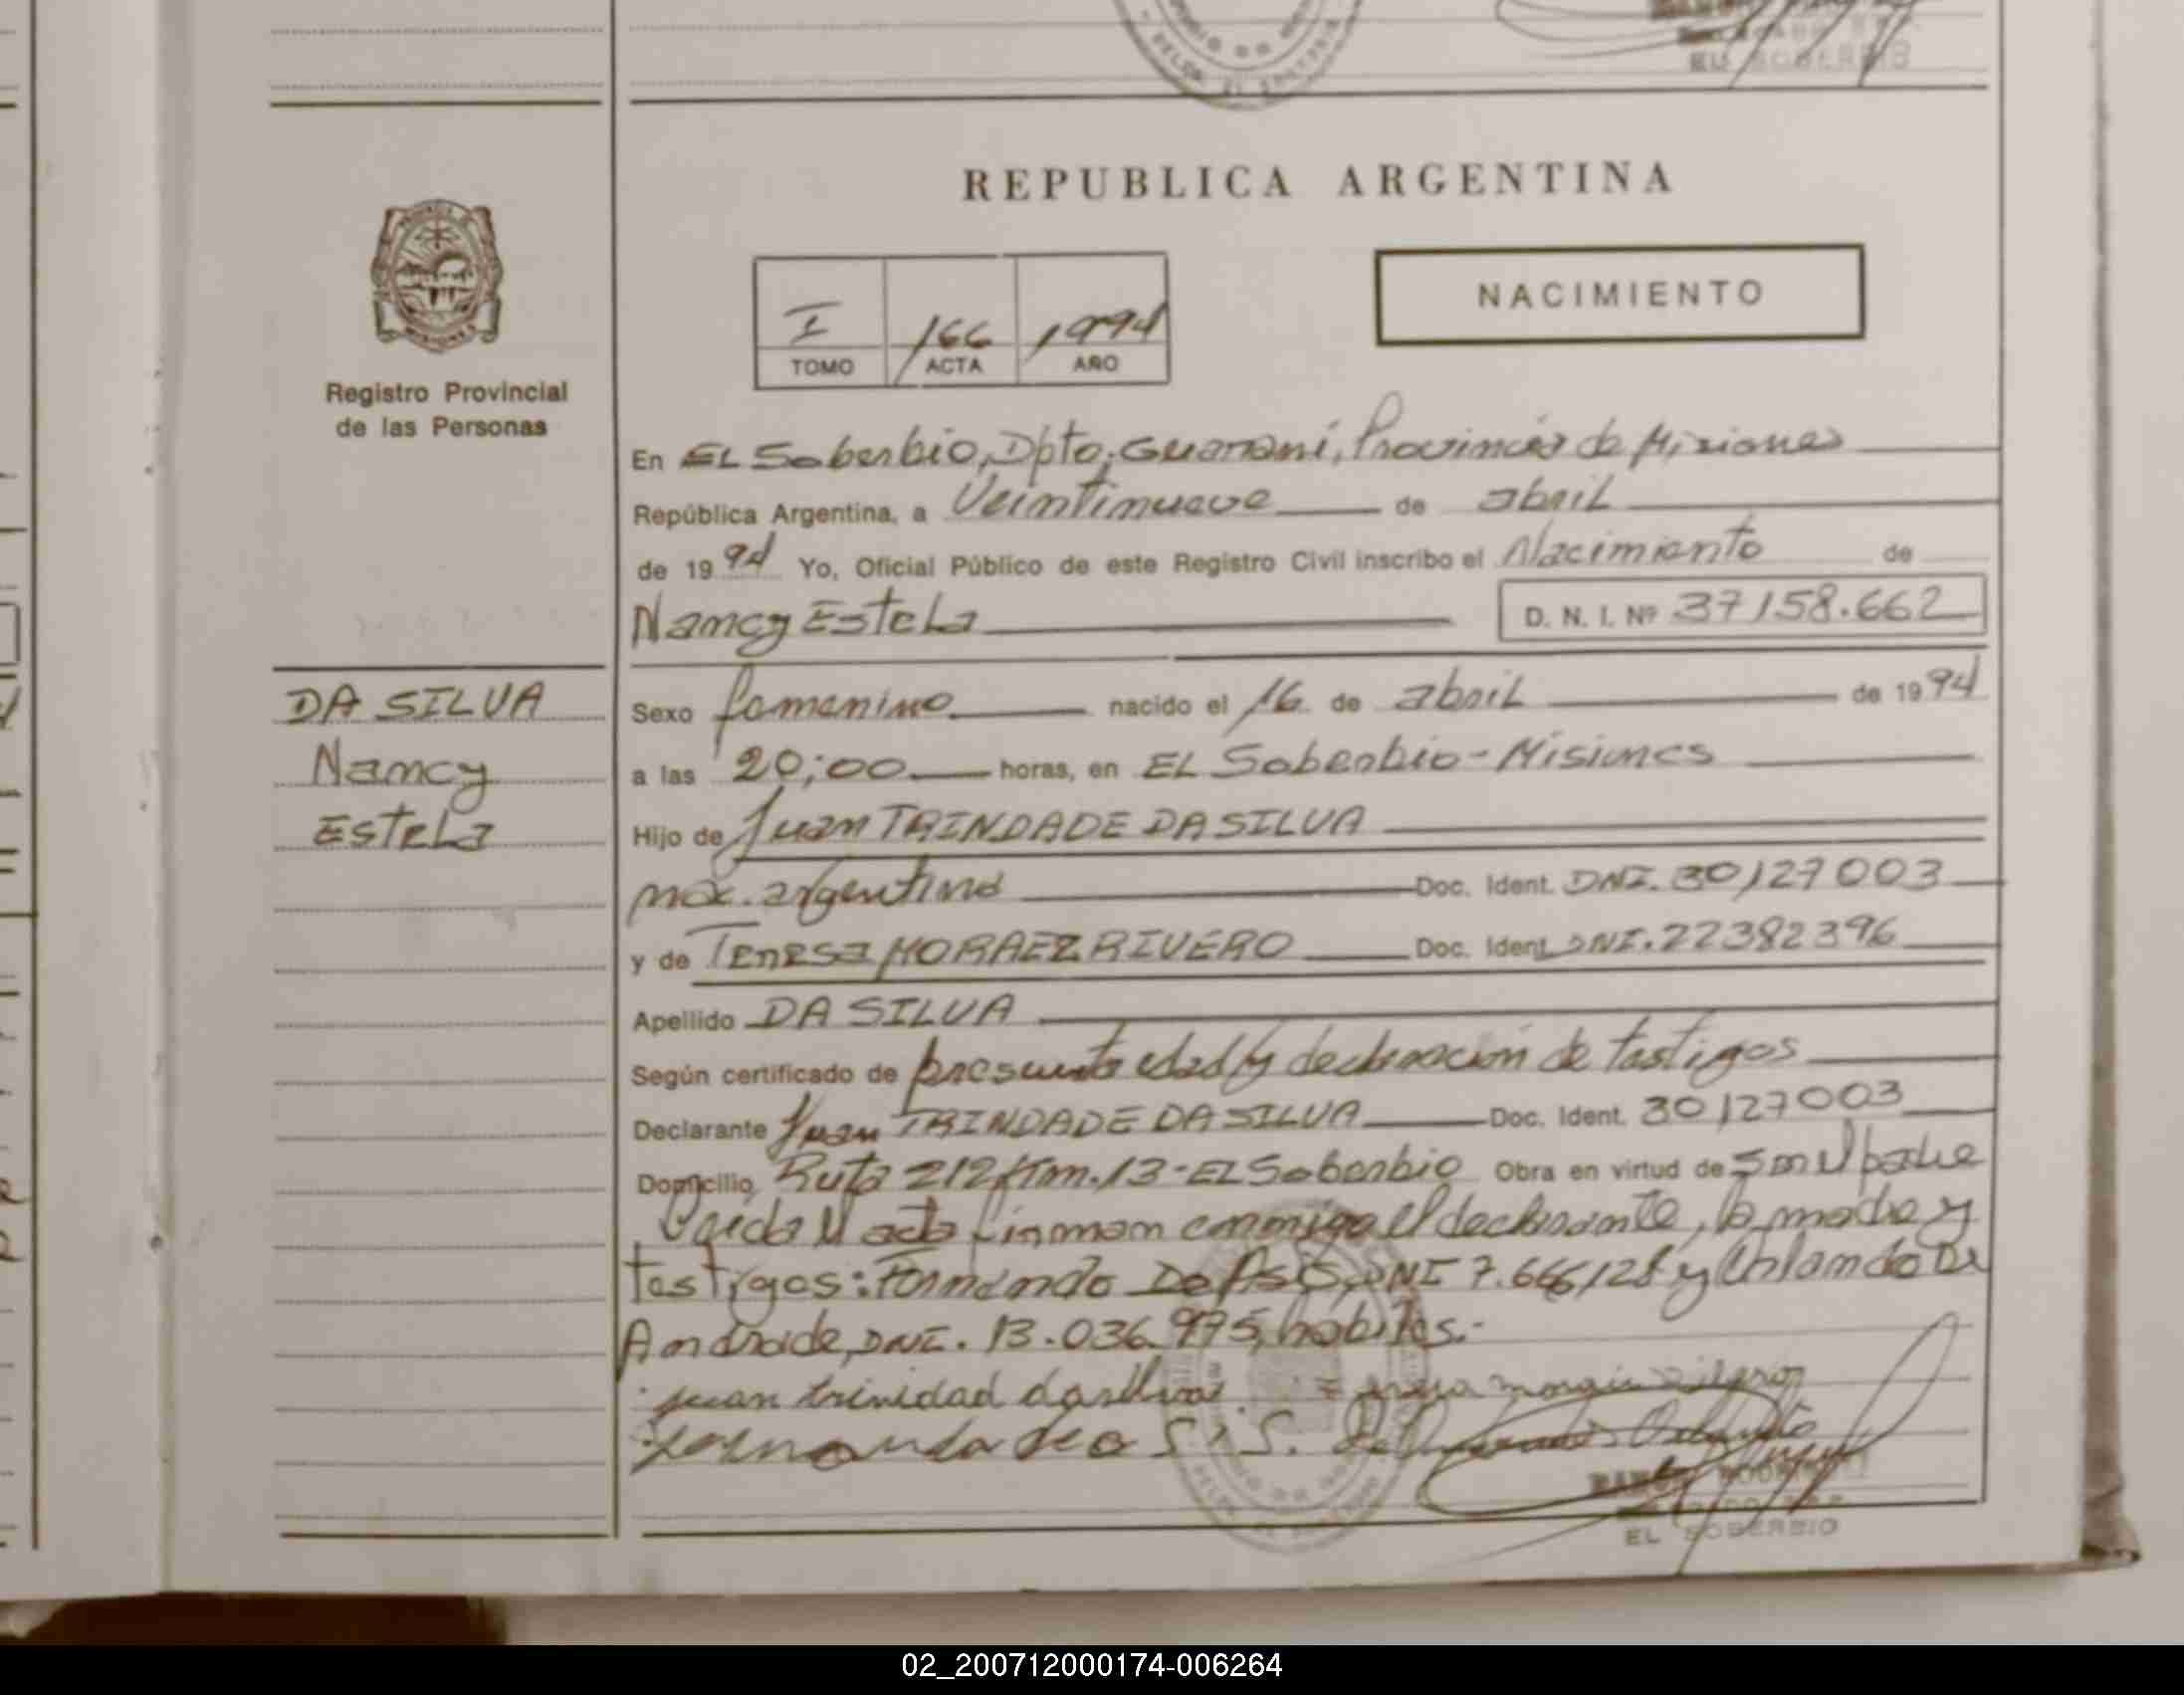 EL SOBERBIO
REPUBLICA ARGENTINA
NACIMIENTO
I 166 1994
TOMO ACTA AÑO
Registro Provincial
de las Personas
En EL Soberbio, Dpto. Guaraní, Provincia de Misiones
República Argentina, a Veintinueve de abril
de 1994 Yo, Oficial Público de este Registro Civil inscribo el Nacimiento de
Nancy Estela D. N. I. Nº 37158.662
DA SILVA
Nancy
Estela
Sexo femenino nacido el 16 de abril de 1994
a las 20;00 horas, en EL Soberbio - Misiones
Hijo de Juan TRINDADE DA SILVA
nac. argentina Doc. Ident. DNI. 30127003
y de Teresa MORAEZ RIVERO Doc. Ident. DNI. 22382396
Apellido DA SILVA
Según certificado de presunta edad y declaración de testigos
Declarante Juan TRINDADE DA SILVA Doc. Ident. 30127003
Domicilio Ruta 212 Km. 13 - EL Soberbio Obra en virtud de ser el padre
Leida el acta firman conmigo el declarante, la madre y
testigos: Fernando De Asis, DNI 7.666128 y Orlando De
Andrade, DNI. 13.036.975, habiles.-
juan trinidad dasilva
EL SOBERBIO
02_200712000174-006264